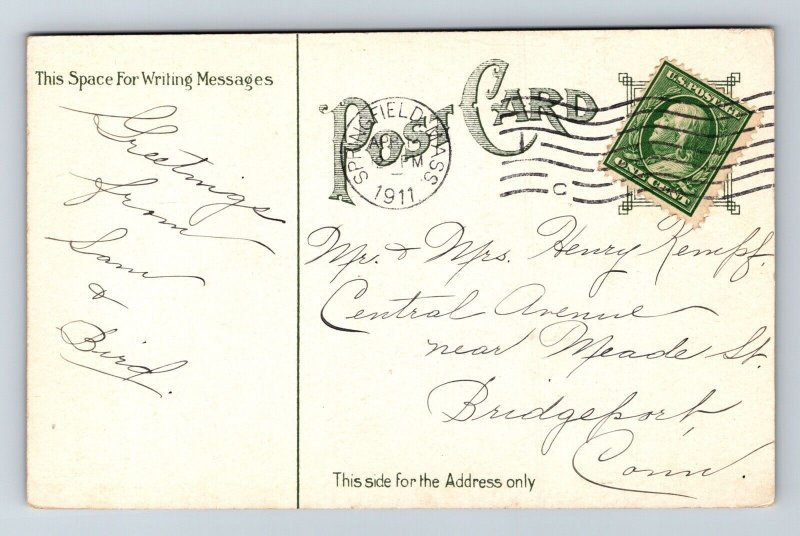 This Space For Writing Messages
Greetings
from
Sam
&
Bird.
POST CARD
SPRINGFIELD, MASS.
APR
PM
1911
C
U.S. POSTAGE
ONE CENT
Mr. & Mrs. Henry Kempf.
Central Avenue
near Meade St.
Bridgeport,
Conn.
This side for the Address only